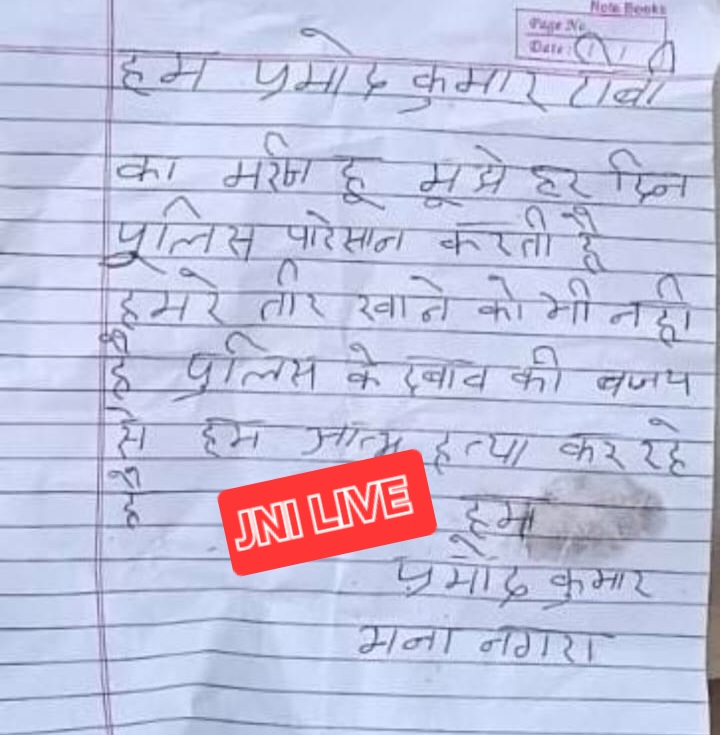 Note Books
Page No
Date:
हम प्रमोद कुमार टीबी
का मरीज हू मूझे हर दिन
पुलिस परेसान करती है
हमरे तीर खाने को भी नही
है पुलिस के दबाव की बजय
से हम आत्म हत्या कर रहे
है
JNI LIVE
हम
प्रमोद कुमार
मना नगरा